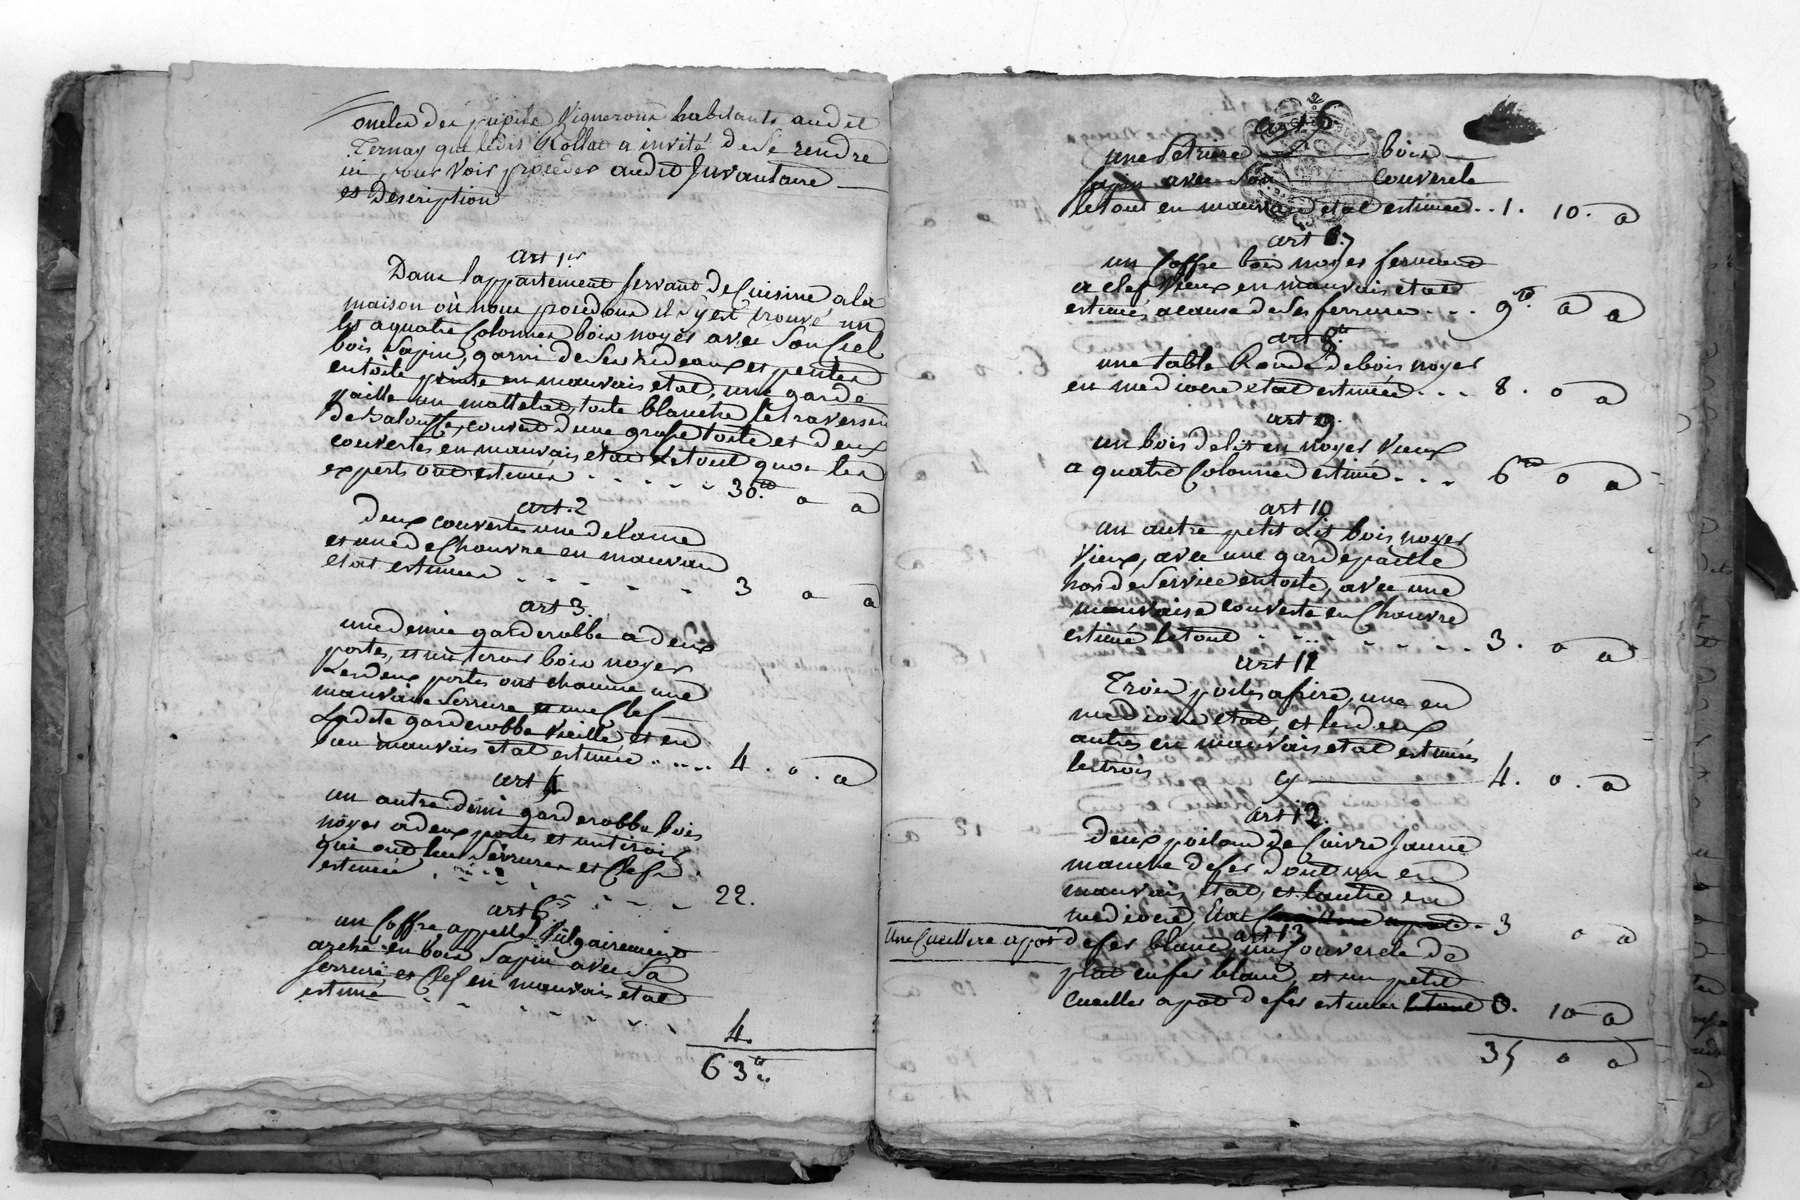 oncles des pupils vignerons habitants audit
Ternay que ledit Rollat a invité de se rendre
ici pour voir proceder audit Juvantaire
et Description
art 1er
Dans l'appartement servant de Cuisine a la
maison où nous procedons il s'y est trouvé un
lit a quatre Colonnes bois noyer avec son Ciel
bois Sapin, garni de ses rideaux et pentes
en toile peinte en mauvais etat, une garde
paille un mattelat toile blanche le traversin
de Balouffe, couvert d'une grosse toile et deux
couvertes en mauvais etat le tout que les
experts ont estimés 30.tt o o
art. 2
deux couvertes une de Laine
et une de Chanvre en mauvais
etat estimées 3 o o
art 3.
une demie garderobbe a deux
portes, et un tiroir bois noyer
Les deux portes ont chacune une
mauvaise Serrure et une Clef
Ladite garderobbe vieille et en
mauvais etat estimée 4. o. o
art 4
un autre demi garderobbe bois
noyer a deux portes et un tiroir
qui ont leur Serrures et Clefs
estimée 22.
art 5
un Coffre appellé Vulgairement
arche en bois Sapin avec Sa
Serrure et Clef en mauvais etat
estimé 4.
63tt
art 6
une Petriere bois
Sapin avec Son couvercle
le tout en mauvais etat estimée .. 1. 10. o
art 7
un Coffre bois noyer fermant
a clef Vieux en mauvais etat
estimés a cause de Ses ferrures ... 9tt o o
art 8.
une table Ronde de bois noyer
en mediocre etat estimée ... 8. o o
art 9.
un bois de lit en noyer Vieux
a quatre Colonnes estimé ... 6tt o o
art 10
un autre petit Lit bois noyer
Vieux, avec une garde paille
hors de Service en toile, avec une
mauvaise couverte en Chanvre
estimé le tout 3. o o
art 11
Trois poiles a frire, une en
mediocre etat, et les deux
autres en mauvais etat estimées
les trois cy 4. o. o
art 12.
Deux poilons de Cuivre Jaune
manche de fer dont un en
mauvais etat, et l'autre en
mediocre Etat 3 o o
art 13
Une Cueillere a pot de fer blanc, un Couvercle de
plat en fer blanc, et un petit
Cueiller a pot de fer estimés le tout 0. 10 o
35 o o